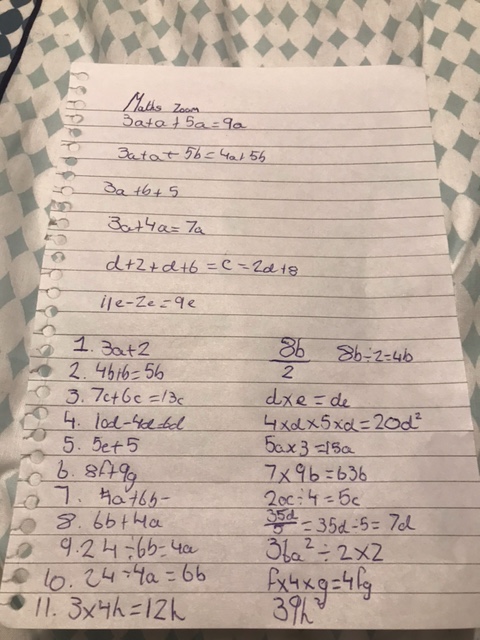 Maths Zoom
3a+a+5a=9a
3a+a+5b=4a+5b
3a+b+5
3a+4a=7a
d+2+d+6=c=2d+8
11e-2e=9e
1. 3a+2
2. 4b+b=5b
3. 7c+6c=13c
4. 10d-4d=6d
5. 5e+5
6. 8f+9g
7. 4a+6b=
8. 6b+4a
9. 24÷6b=4a
10. 24÷4a=6b
11. 3x4h=12h
8b/2 8b÷2=4b
dxe=de
4xdx5xd=20d²
5ax3=15a
7x9b=63b
20c÷4=5c
35d/5=35d-5=7d
36a²÷2x2
fx4xg=4fg
39h²